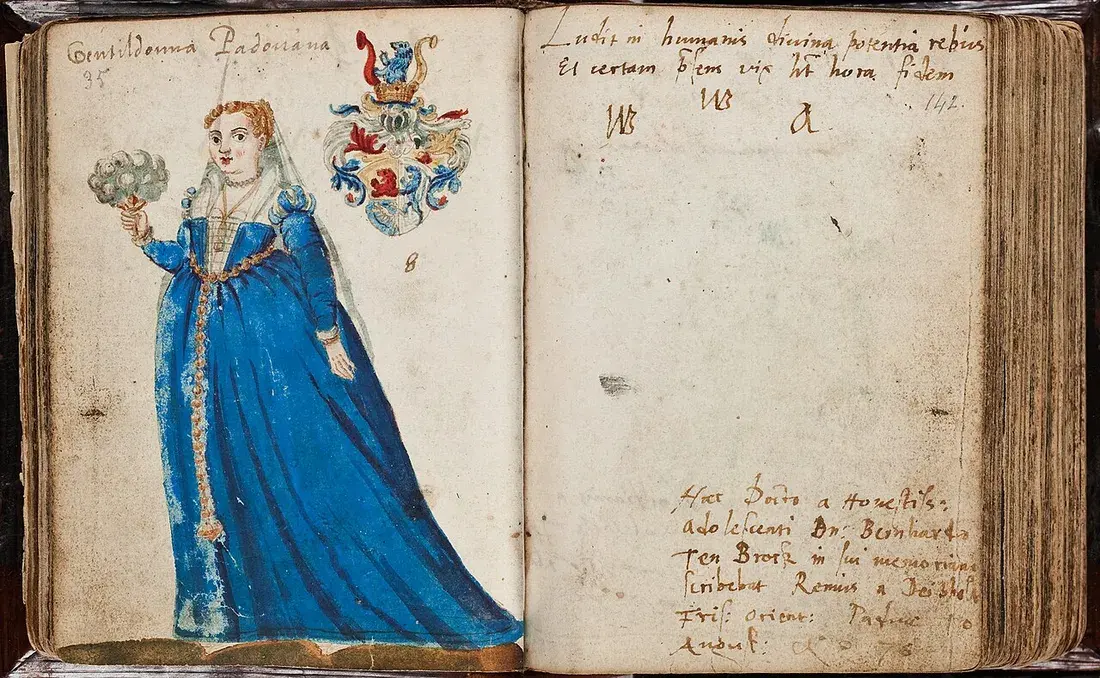 Gentildonna Padouana
35
8
Ludit in humanis divina potentia rebus
Et certam p̄sens vix ht hora fidem
142.
W W A
Hæc Docto a Honestiss:
adolescenti Dn: Bernhardo
Ten Broek in sui memoriam
scribebat Remus a
Fris: orient: Patavie
August: